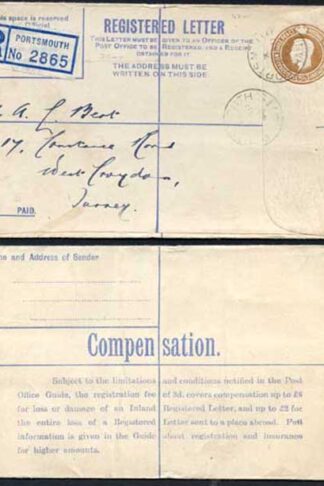 his space is reserved
Official
REGISTERED LETTER
THIS LETTER MUST BE GIVEN TO AN OFFICER OF THE
POST OFFICE TO BE REGISTERED AND A RECEIPT
OBTAINED FOR IT
THE ADDRESS MUST BE
WRITTEN ON THIS SIDE
R PORTSMOUTH
No 2865
A. C. Best
17,
West Croydon,
Surrey.
PAID.
ne and Address of Sender
Compensation.
Subject to the limitations and conditions notified in the Post
Office Guide, the registration fee of 3d. covers compensation up to £5
for loss or damage of an Inland Registered Letter, and up to £2 for
the entire loss of a Registered Letter sent to a place abroad.
information is given in the Guide about registration and insurance
for higher amounts.